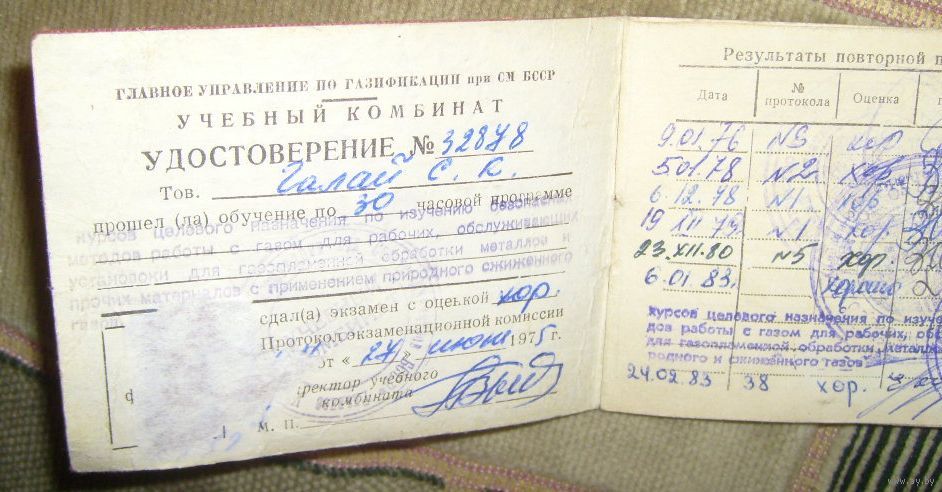 ГЛАВНОЕ УПРАВЛЕНИЕ ПО ГАЗИФИКАЦИИ при СМ БССР
УЧЕБНЫЙ КОМБИНАТ
УДОСТОВЕРЕНИЕ № 32878
Тов. Галай С. К.
прошел (ла) обучение по 30 часовой программе
курсов целевого назначения по изучению безопасных
методов работы с газом для рабочих, обслуживающих
установки для газопламенной обработки металлов и
прочих материалов с применением природного сжиженного
газов.
сдал(а) экзамен с оценкой хор.
Протокол экзаменационной комиссии
от « 27 » июня 1975 г.
иректор учебного
комбината
М. П.
Результаты повторной п
Дата № протокола Оценка
9.01.76 №5 хор
5.01.78 №2 хор.
6.12.78 №1 хор
19 XII 79 №1 хор.
23.XII.80 №5 хор.
6.01.83. хорошо
курсов целевого назначения по изуче
дов работы с газом для рабочих, об
для газопламенной обработки металло
родного и сжиженного газов
24.02.83 38 хор.
www.ay.by